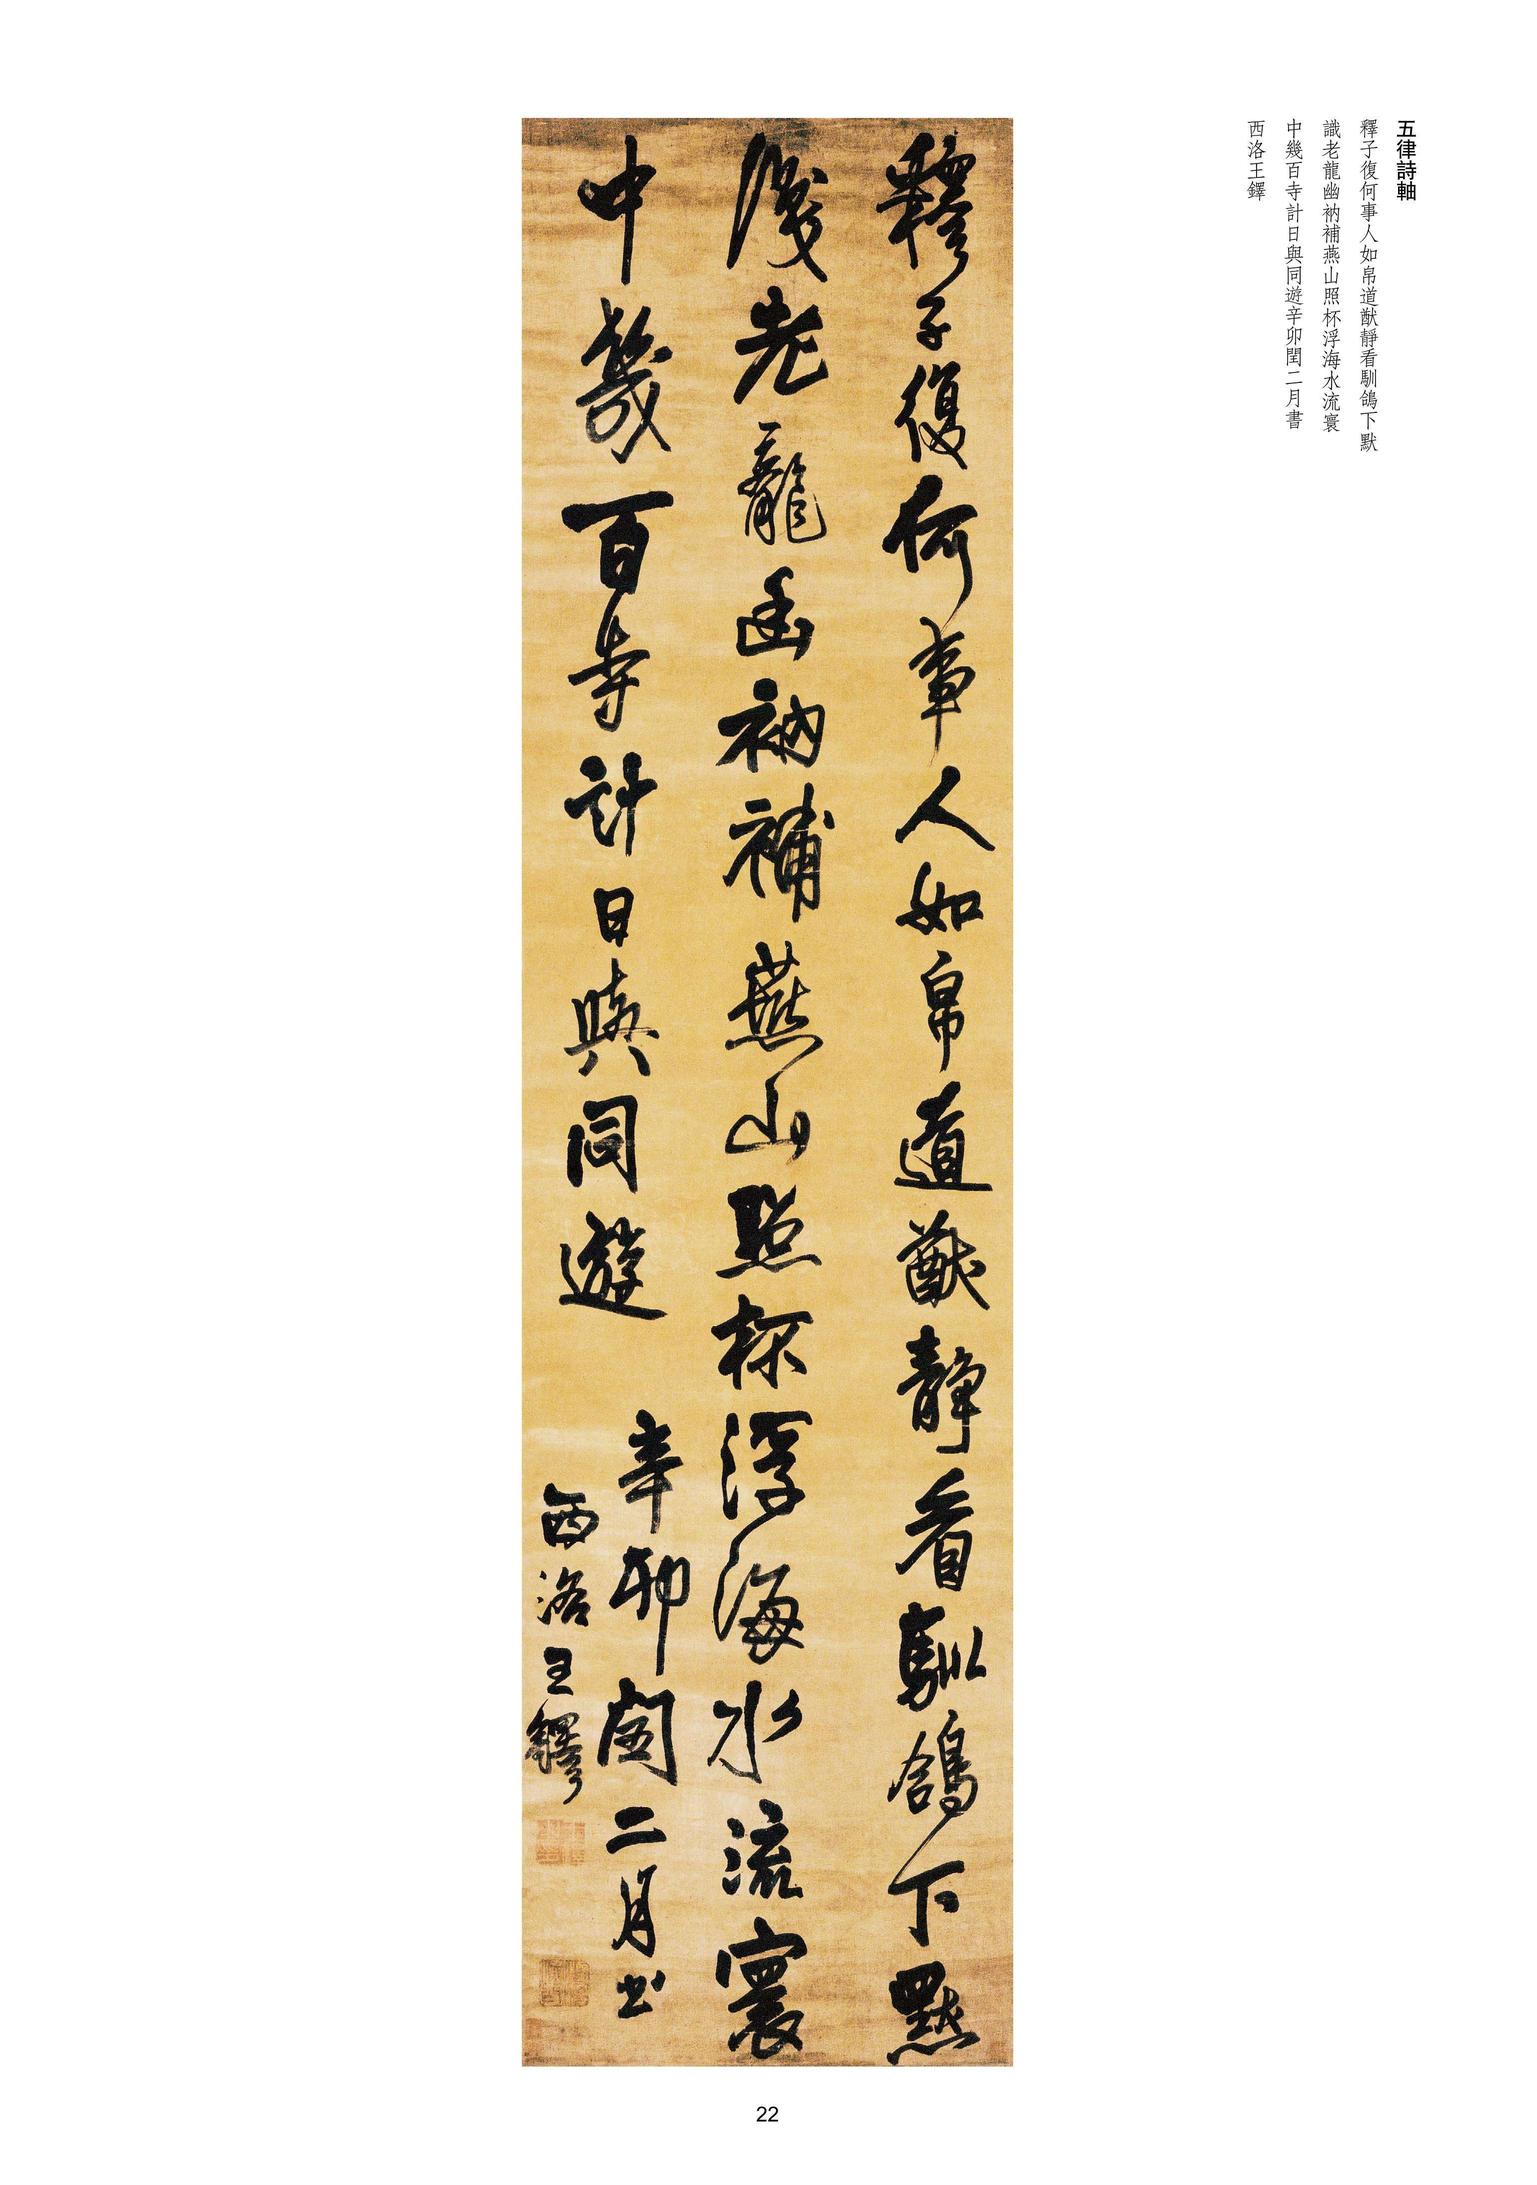 五律詩軸
釋子復何事人如帛道猷靜看馴鴿下默
識老龍幽衲補燕山照杯浮海水流寰
中幾百寺計日與同遊辛卯閏二月書
西洛王鐸
釋子復何事人如帛道猷靜看馴鴿下默
識老龍幽衲補燕山照杯浮海水流寰
中幾百寺計日與同遊 辛卯閏二月書
西洛王鐸
22